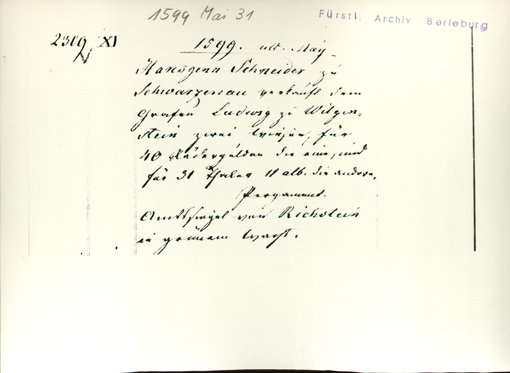 1599 Mai 31
Fürstl. Archiv Berleburg
2309 XI
1599. ult. May
Hanszenn Schneider zu
Schwarzenau verkauft dem
Grafen Ludwig zu Witgen-
stein zwei Wiesen, für
40 Rädergulden die eine, und
für 31 Thaler 11 alb. die andere.
Pergament.
Amtssiegel von Richstein
in grünem Wachs.